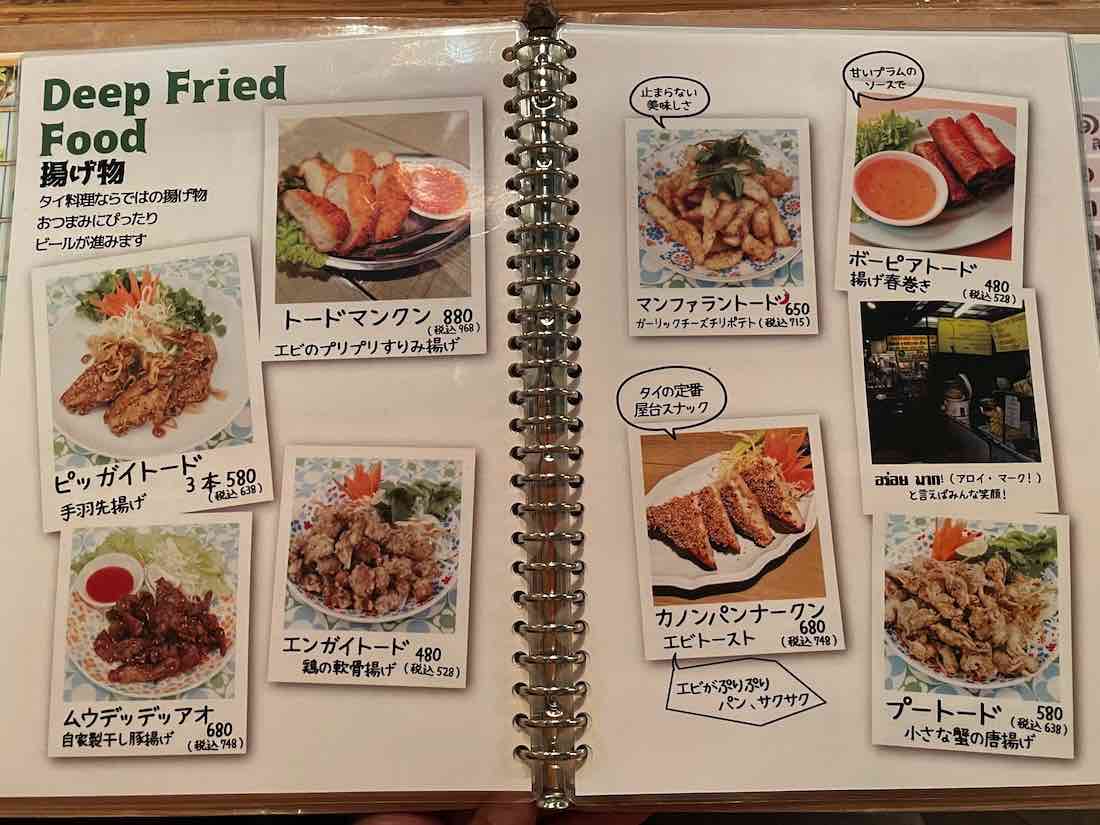 Deep Fried
Food
揚げ物
タイ料理ならではの揚げ物
おつまみにぴったり
ビールが進みます
トードマンクン 880
(税込968)
エビのプリプリすりみ揚げ
ピッガイトード
3本 580
(税込638)
手羽先揚げ
エンガイトード 480
鶏の軟骨揚げ (税込528)
ムウデッデッアオ
680
自家製干し豚揚げ (税込748)
止まらない
美味しさ
マンファラントード 650
ガーリックチーズチリポテト (税込715)
甘いプラムの
ソースで
ボーピアトード
揚げ春巻き 480
(税込528)
タイの定番
屋台スナック
カノンパンナークン
680
エビトースト (税込748)
エビがぷりぷり
パン、サクサク
อร่อย มาก! (アロイ・マーク!)
と言えばみんな笑顔!
プートード 580
(税込638)
小さな蟹の唐揚げ